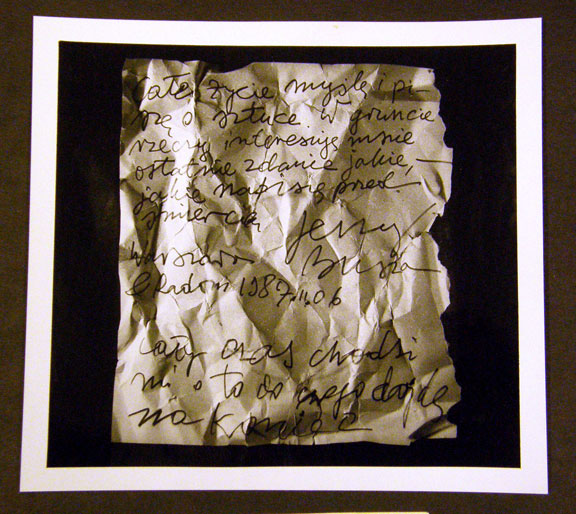 Całe życie myślę i pi-
szę o sztuce. W gruncie
rzeczy interesuje mnie
ostatnie zdanie jakie,
jakie napiszę przed
śmiercią
Jerzy
Warszawa Busza
Radom 1987
cały czas chodzi
mi o to do czego dojdę
na końcu